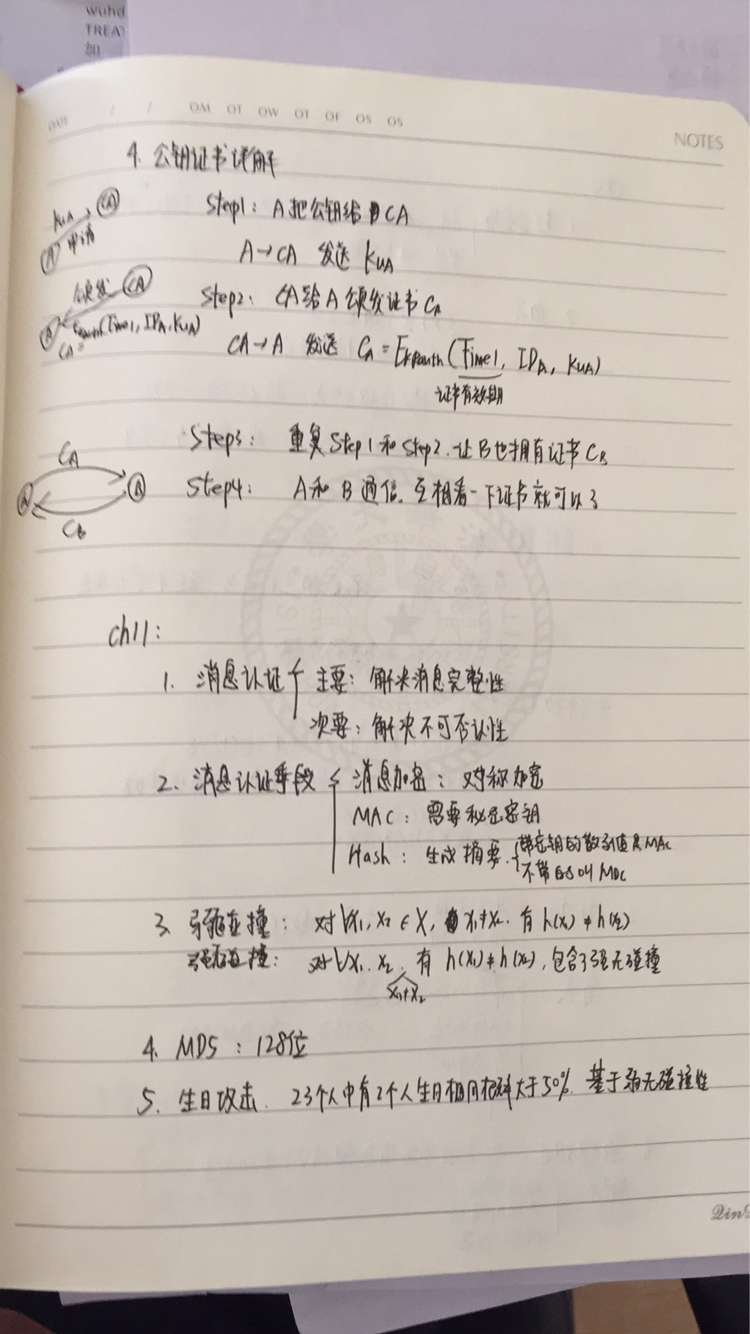 wuhd
TREA
加
DATE / / OM OT OW OT OF OS OS
NOTES
4. 公钥证书详解
KUA
CA
A 申请
Step1: A把公钥给CA
A→CA 发送 KUA
颁发 CA
A
CA=
(Time1, IDA, KUA)
Step2: CA给A颁发证书CA
CA→A 发送 CA = EKRauth (Time1, IDA, KUA)
证书有效期
Step3: 重复Step1和Step2. 让B也拥有证书CB
CA
A A
Cb
Step4: A和B通信. 互相看一下证书就可以了
ch11:
1. 消息认证 主要: 解决消息完整性
次要: 解决不可否认性
2. 消息认证手段 消息加密: 对称加密
MAC: 需要秘密密钥
Hash: 生成摘要. 带密钥的散列值是MAC
不带的叫MDC
3. 弱无碰撞: 对∀x1, x2 ∈ X, x1≠x2. 有 h(x1) ≠ h(x2)
强无碰撞: 对∀x1. x2. 有 h(x1) ≠ h(x2), 包含了强无碰撞
x1≠x2
4. MD5: 128位
5. 生日攻击. 23个人中有2个人生日相同概率大于50%. 基于弱无碰撞性